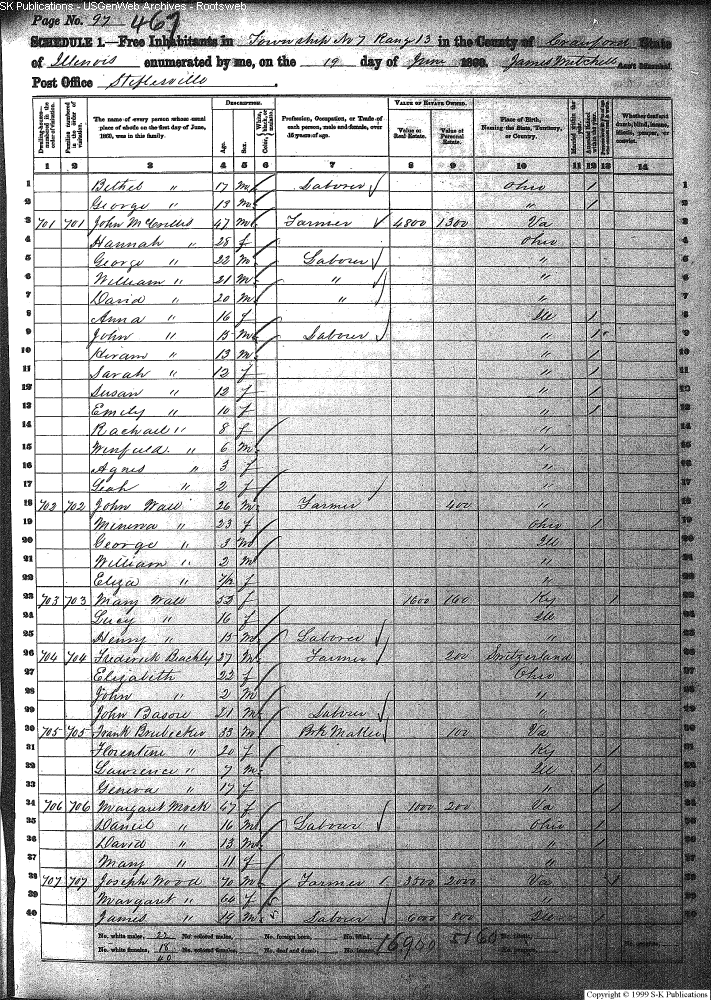 SK Publications - USGenWeb Archives - Rootsweb
Page No. 97 467
SCHEDULE 1.—Free Inhabitants in Township No 7 Rang 13 in the County of Crawford State
of Illinois enumerated by me, on the 19 day of June 1860. James Mitchell Ass't Marshal.
Post Office Steflesville.
DESCRIPTION. VALUE OF ESTATE OWNED.
Dwelling-houses—numbered in the order of visitation. Families numbered in the order of visitation. The name of every person whose usual place of abode on the first day of June, 1860, was in this family. Age. Sex. Color, Profession, Occupation, or Trade of each person, male and female, over 15 years of age. Value of Real Estate. Value of Personal Estate. Place of Birth, Naming the State, Territory, or Country. Whether deaf and dumb, blind, insane, idiotic, pauper, or convict.
1 2 3 4 5 6 7 8 9 10 11 12 13 14
1 Bethel " 17 m Laborer Ohio / 1
2 George " 13 m " / 2
3 701 701 John McCrillis 47 m Farmer 4800 1300 Va 3
4 Hannah " 28 f Ohio
5 George " 22 m Laborer " 5
6 William " 21 m " " 6
7 David " 20 m " " 7
8 Anna " 16 f Ill / 8
9 John " 15 m Laborer " / 9
10 Hiram " 13 m " / 10
11 Sarah " 12 f " / 11
12 Susan " 12 f " / 12
13 Emily " 10 f " / 13
14 Rachael " 8 f " 14
15 Winfield " 6 m " 15
16 Agnes " 3 f " 16
17 Leah " 2 f " 17
18 702 702 John Wall 26 m Farmer 400 " 18
19 Minerva " 23 f Ohio / 19
20 George " 3 m Ill 20
21 William " 2 m "
22 Eliza " f "
23 703 703 Mary Wall 52 f 1600 160 Ky /
24 Lucy " 16 f Ill
25 Henry " 15 m Laborer "
26 704 704 Frederick Beachly 27 m Farmer 200 Switzerland
27 Elizabeth 22 f Ohio
28 John " 2 m "
29 John Basore 21 m Labour "
30 705 705 Frank Brubecker 33 m Brk Maker 100 Va
31 Florentine " 20 f Ky /
32 Lawrence " 7 m Ill /
33 Geneva " 17 f " /
34 706 706 Margaret Mock 47 f 1000 200 Va /
35 Daniel " 16 m Labour Ohio /
36 David " 13 m " /
37 Mary " 11 f "
38 707 707 Joseph Wood 70 m Farmer 3500 2000 Va /
39 Margaret " 64 f "
40 James " 19 m Labour 6000 800 Ill / 40
No. white males, 22 No. colored males, No. foreign born, No. blind, 16900 5160
No. white females, 18 No. colored females, No. deaf and dumb,
40
Copyright © 1999 S-K Publications